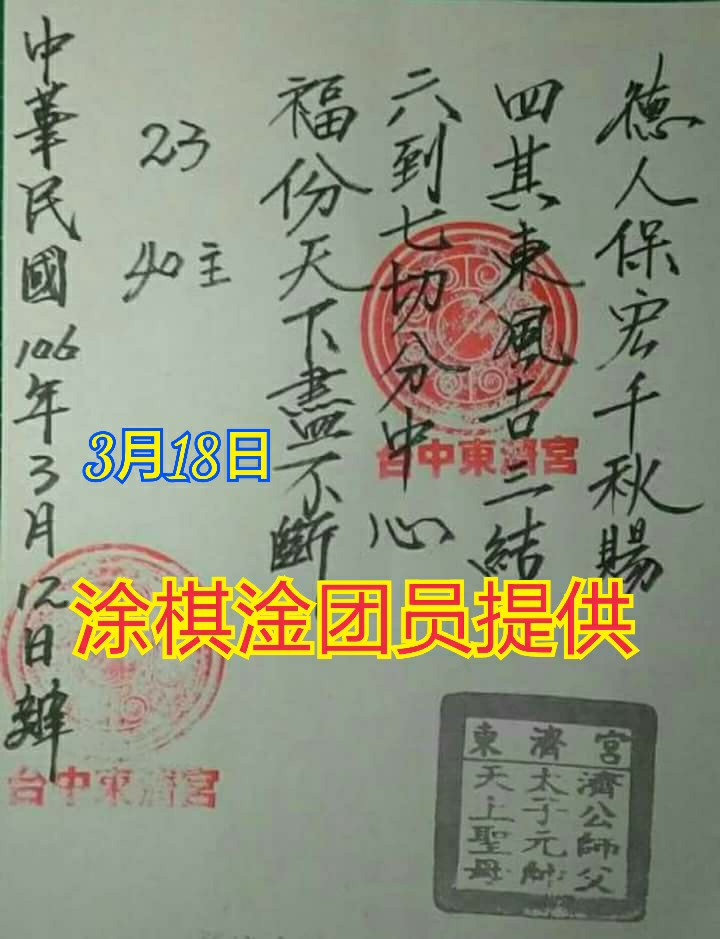 德人保宏千秋賜
四其東風吉三結
六到七切分中心
福份天下盡不斷
23
40主
中華民國106年3月12日
3月18日
涂棋淦团员提供
台中東濟宮
台中東濟宮
東濟宮
濟公師父
太子元帥
天上聖母